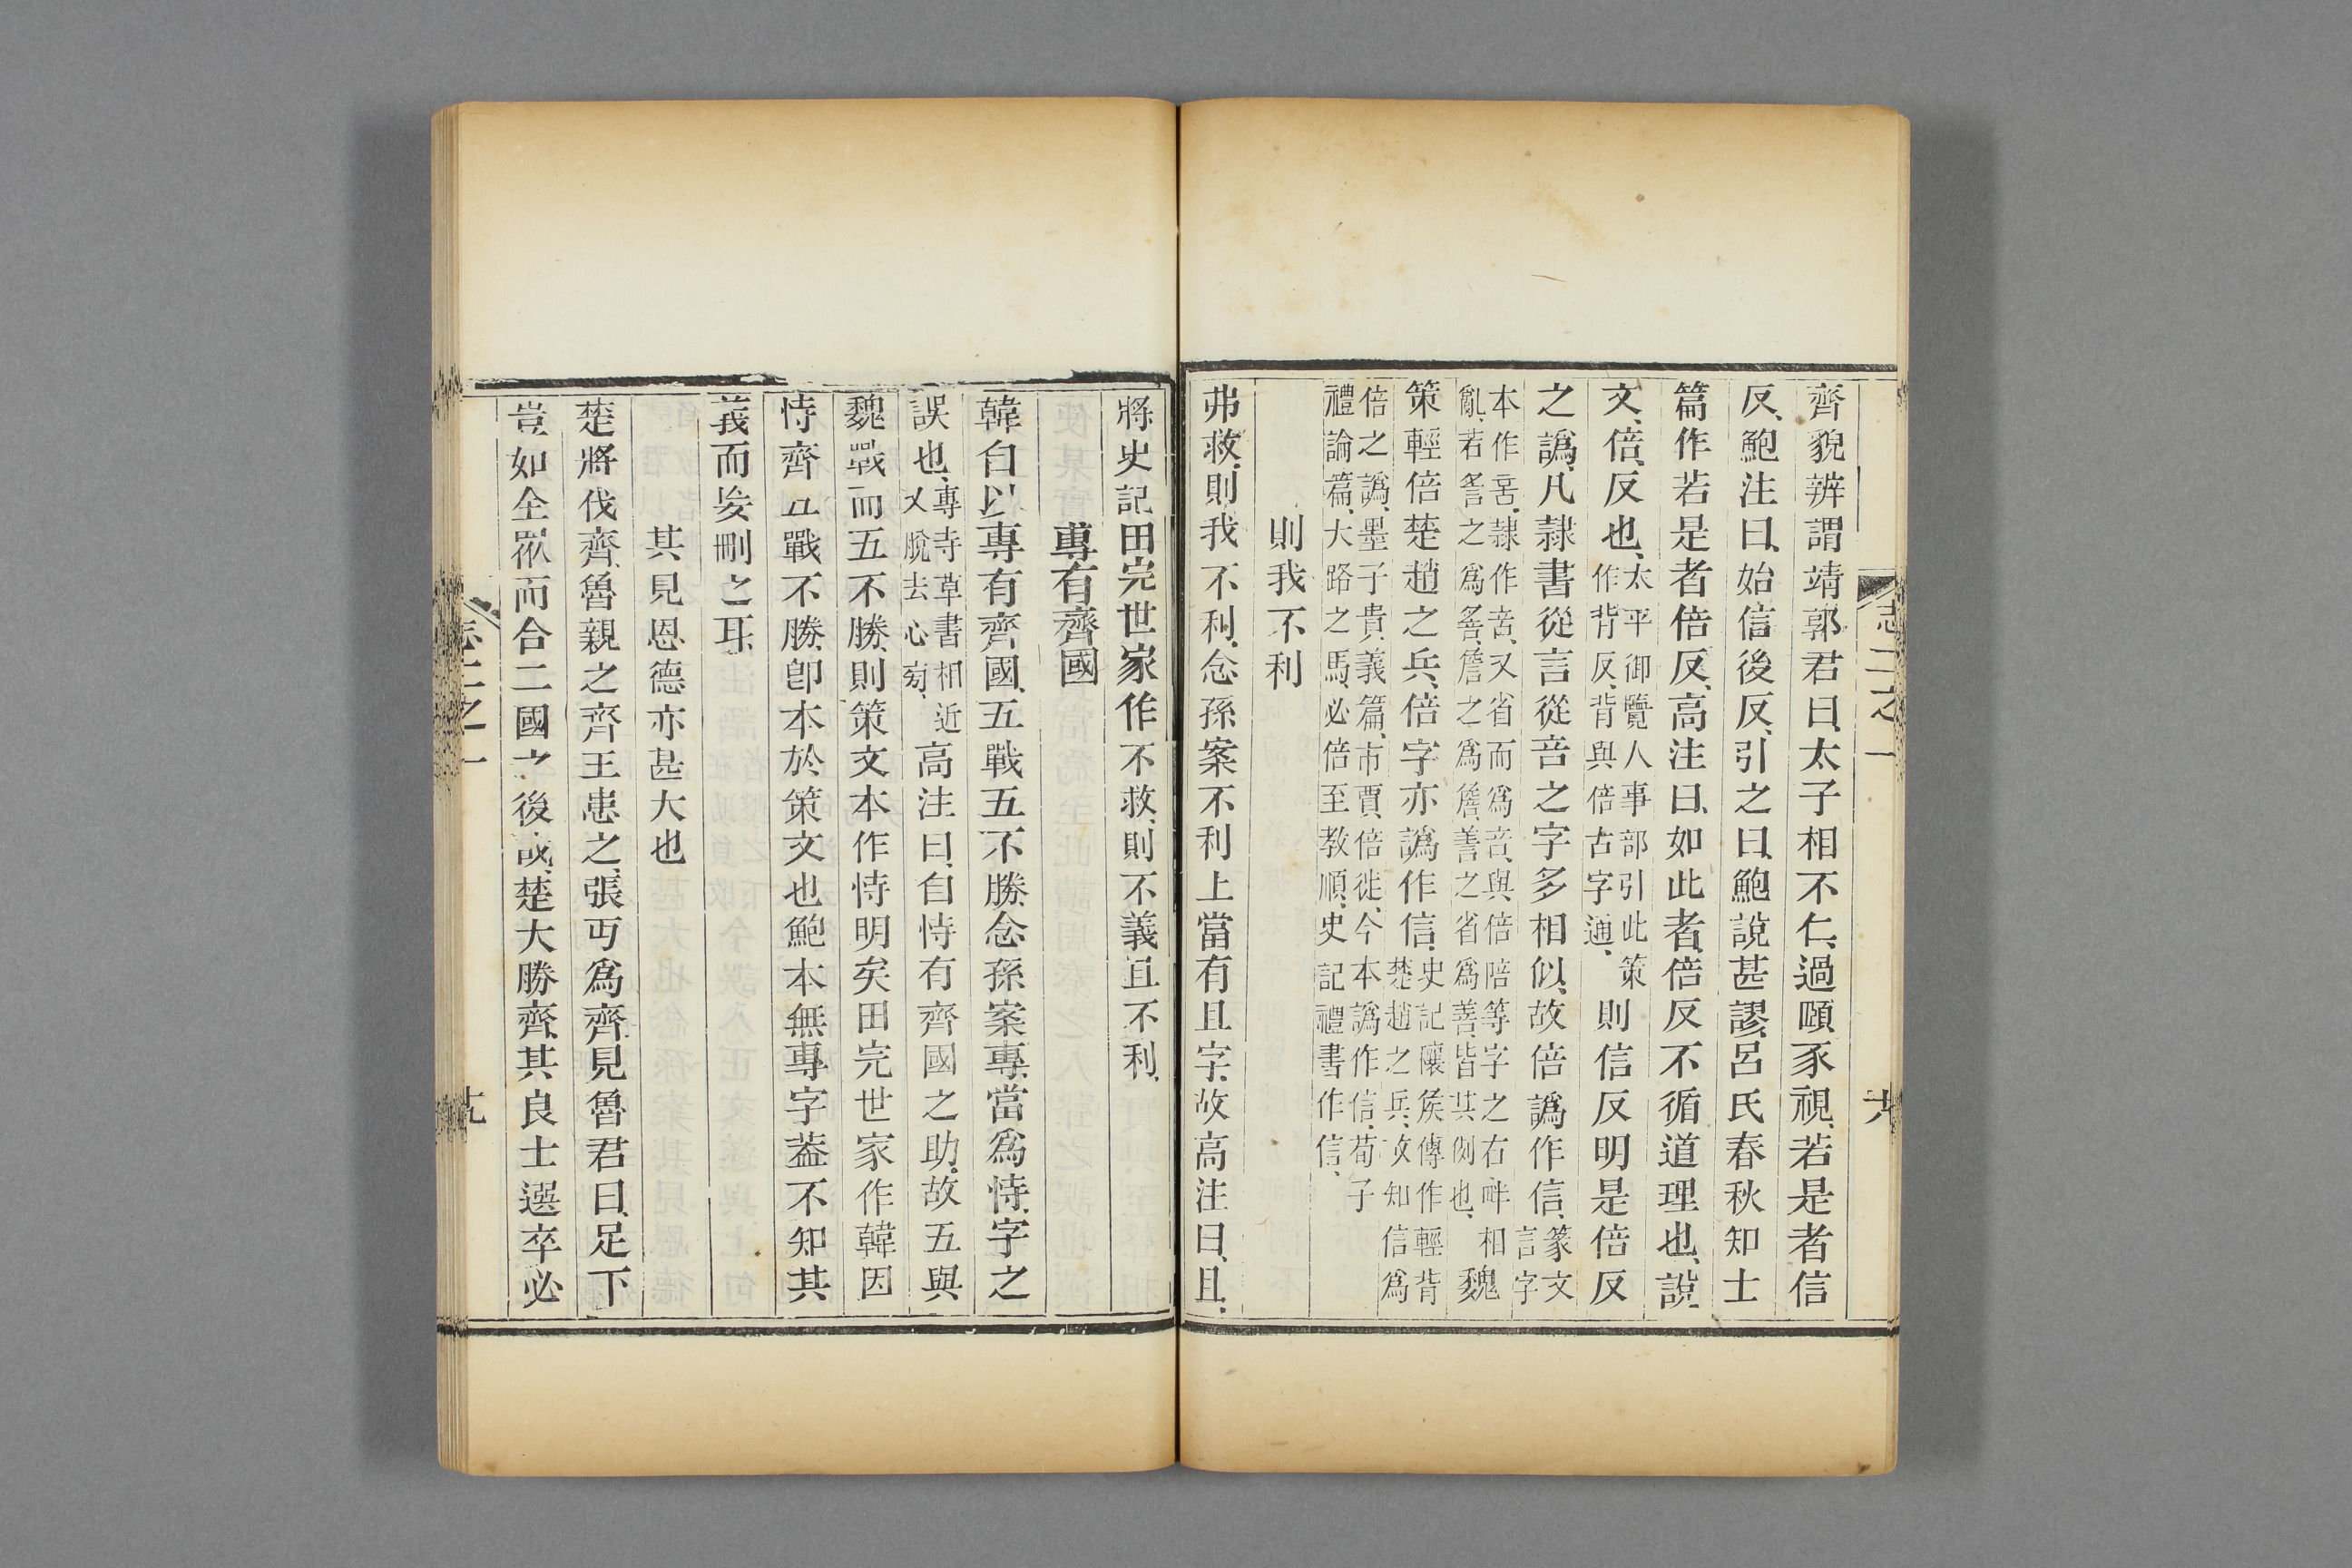 志二之一
十八
齊貌辨謂靖郭君曰、太子相不仁、過頤豕視、若是者信
反、鮑注曰、始信後反、引之曰、鮑說甚謬、呂氏春秋知士
篇作若是者倍反、高注曰、如此者、倍反不循道理也、說
文、倍、反也、太平御覽人事部引此策
作背反、背與倍古字通、則信反明是倍反
之譌、凡隷書從言從咅之字多相似、故倍譌作信、篆文
言字
本作𠱫、隷作咅、又省而爲音、與倍陪等字之右畔相
亂、若䛐之爲䛒、詹之爲詹、善之省爲善、皆其例也、魏
策輕倍楚趙之兵、倍字亦譌作信、史記穰侯傳作輕背
楚趙之兵、故知信爲
倍之譌、墨子貴義篇、市賈倍徙、今本譌作信、荀子
禮論篇、大路之馬、必倍至敎順、史記禮書作信、
則我不利
弗救、則我不利、念孫案不利上當有且字、故高注曰、且、
將史記田完世家作不救、則不義且不利、
專有齊國
韓自以專有齊國、五戰五不勝、念孫案、專當爲恃、字之
誤也、專寺草書相近
又脫去心㫄、高注曰、自恃有齊國之助、故五與
魏戰而五不勝、則策文本作恃明矣田完世家作韓因
恃齊五戰不勝、卽本於策文也鮑本無專字葢不知其
義而妄刪之耳
其見恩德亦甚大也
楚將伐齊、魯親之、齊王患之、張丏爲齊見魯君曰、足下
豈如全眾而合二國之後哉、楚大勝齊、其良士選卒必
志二之一
十九